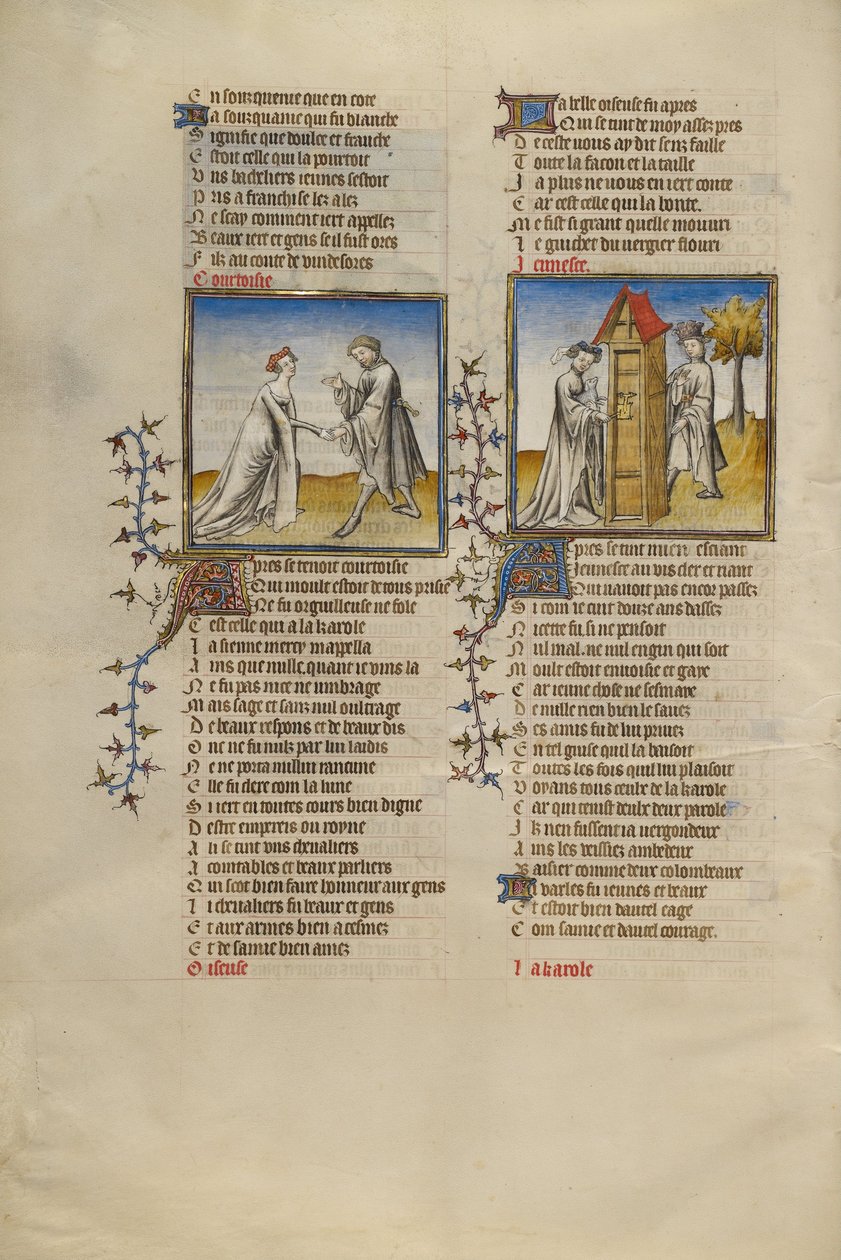 En sourquenie que en cote
La sourquanie qui fu blanche
Signifie que doulce et franche
Estoit celle qui la portoit
Uns bachelers ieunes sestoit
Pris a franchise lez a lez
Ne scay comment iert appellez
Beaux iert et gens se il fust ores
Filz au conte de vindesores
Courtoisie
Apres se tenoit courtoisie
Qui moult estoit de tous prisie
Ne fu orguilleuse ne fole
Cest celle qui a la karole
La sienne mercy mappella
Ains que nulle. quant ie vins la
Ne fu pas nice ne umbrage
Mais sage et sanz nul oultrage
De beaux respons et de beaux dis
Onc ne fu nulz par lui laidis
Ne ne porta nullui rancune
Elle fu clere com la lune
Si iert en toutes cours bien digne
Destre empereis ou royne
A li se tint uns chevaliers
Acointables et beaux parliers
Qui scot bien faire honneur aux gens
Li chevaliers fu beaux et gens
Et aux armes bien acesmez
Et de samie bien amez
Oiseuse
La belle oiseuse fu apres
Qui se tint de moy assez pres
De ceste vous ay dit senz faille
Toute la facon et la taille
Ia plus ne vous en iert conte
Car cest celle qui la bonte.
Me fist si grant quelle mouvri
Le guichet du vergier flouri
Ieunesce.
Apres se tint mien esciant
Ieunesce au vis cler et riant
Qui navoit pas encor passez
Si com ie cuit douze ans dassez
Nicette fu. si ne pensoit
Nul mal. ne nul engin qui soit
Moult estoit envoisie et gaye
Car ieune chose ne sesmaye
De nulle rien bien le savez
Ses amis fu de lui privez
En tel guise quil la baisoit
Toutes les fois quil lui plaisoit
Voyans tous ceulx de la karole
Car qui tenist deulx deux parole
Ilz nen fussent ia vergondeux
Ains les veissiez ambedeux
Baisier comme deux colombeaux
Li varles fu ieunes et beaux
Et estoit bien dautel eage
Com samie et dautel courage.
La karole